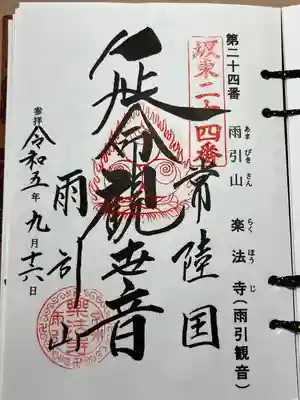 第二十四番　雨引山　楽法寺(雨引観音)
あまびきさん　らくほうじ
坂東二十四番
常陸国
延命觀世音
雨引山
参拝 令和五年九月十六日